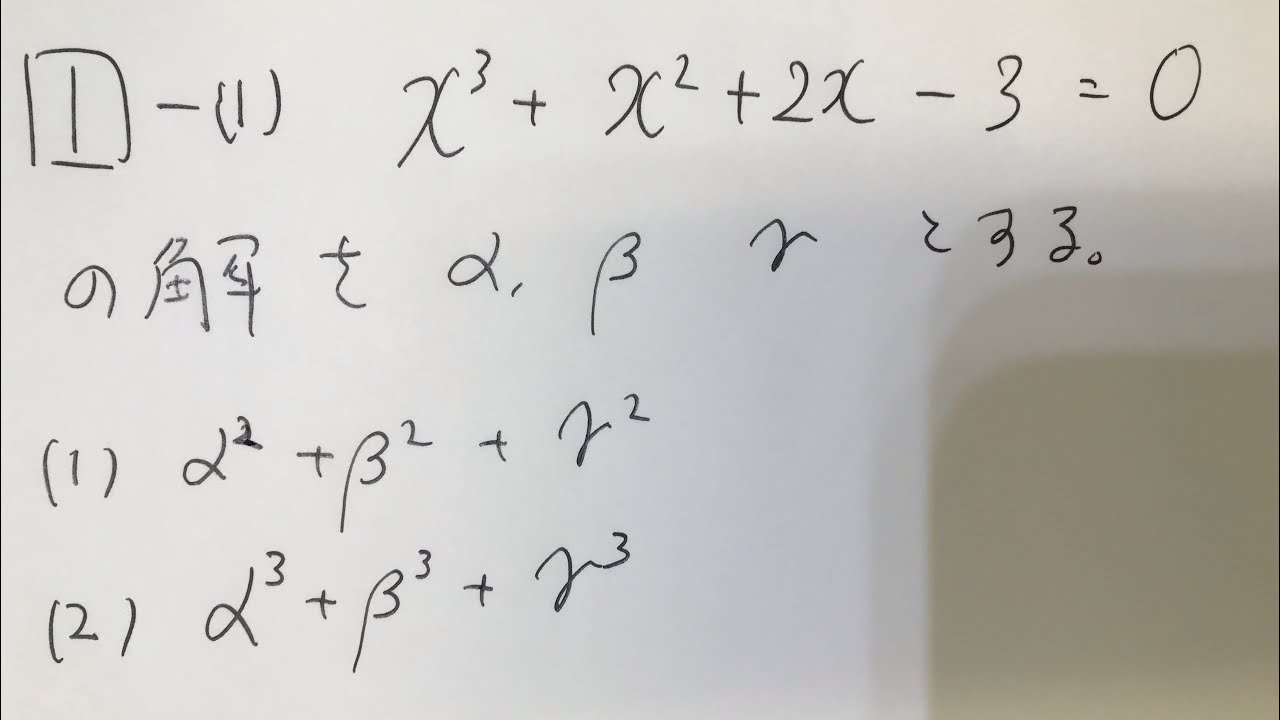 1-(1) x³ + x² + 2x - 3 = 0
の解を α, β γ とする。
(1) α² + β² + γ²
(2) α³ + β³ + γ³